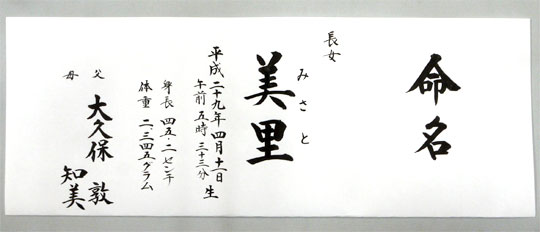 命名
長女
美里
みさと
平成二十九年四月十一日生
午前五時三十三分
身長四五・二センチ
体重二、三四五グラム
父 大久保 敦
母 知美